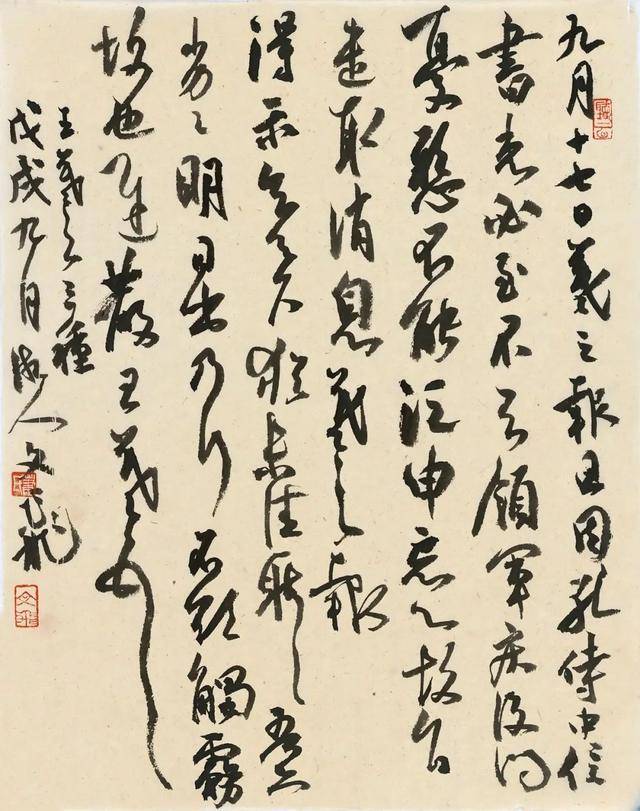 九月十七日羲之報且因孔侍中信
書想必至不知領軍疾後問
憂懸不能須臾忘心故旨
遣取消息羲之報
得示知足下猶未佳耿耿吾亦
劣劣明日出乃行不欲觸霧
故也遲散王羲之頓首
王羲之三種
戊戌九月人文